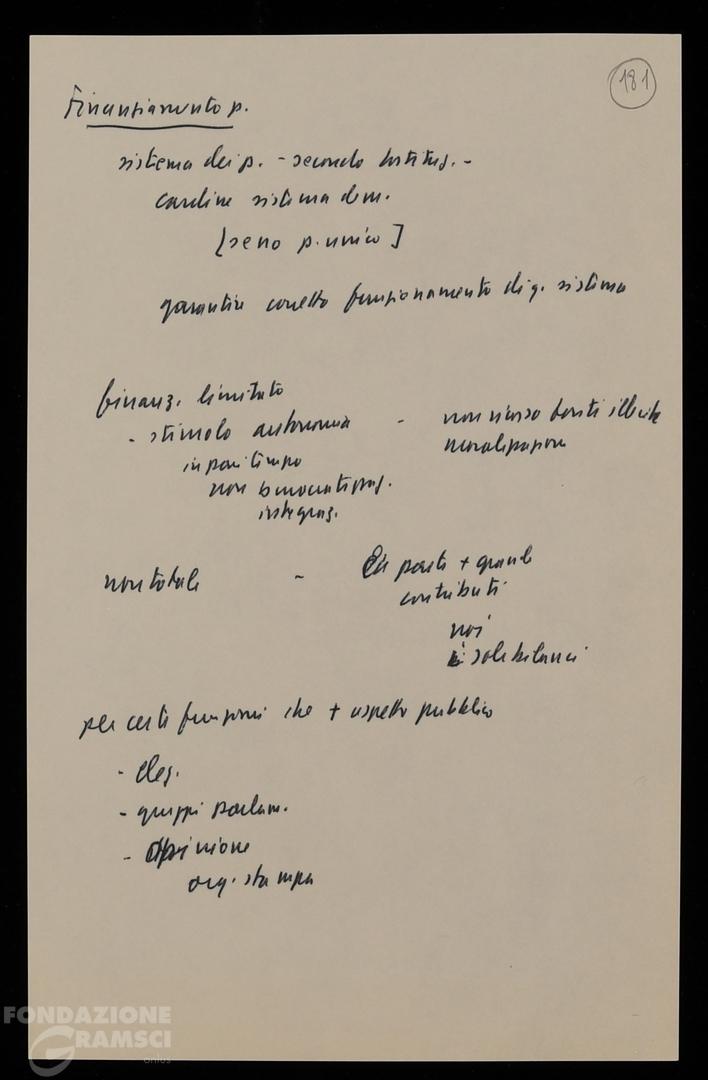 181
Finanziamento p.
sistema dei p. - secondo Costituz. -
cardine sistema dem.
[seno p. unico]
garantire corretto funzionamento di q. sistema
finanz. limitato
- stimolo autonomia - non ricorso fonti illecite
in pari tempo
non burocratizzaz.
integraz.
non totale -
parte + grande
contributi
noi
soli bilanci
per certe funzioni che + aspetto pubblico
- elez.
- gruppi parlam.
- opinione
org. stampa
FONDAZIONE
GRAMSCI
onlus